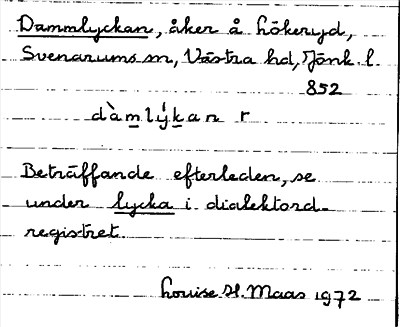 Dammlyckan, åker å Hökeryd,
Svenarums sn, Västra hd, Jönk. l.
852
dàmlýkan r
Beträffande efterleden, se
under lycka i dialektord-
registret.
Louise H. Maas 1972